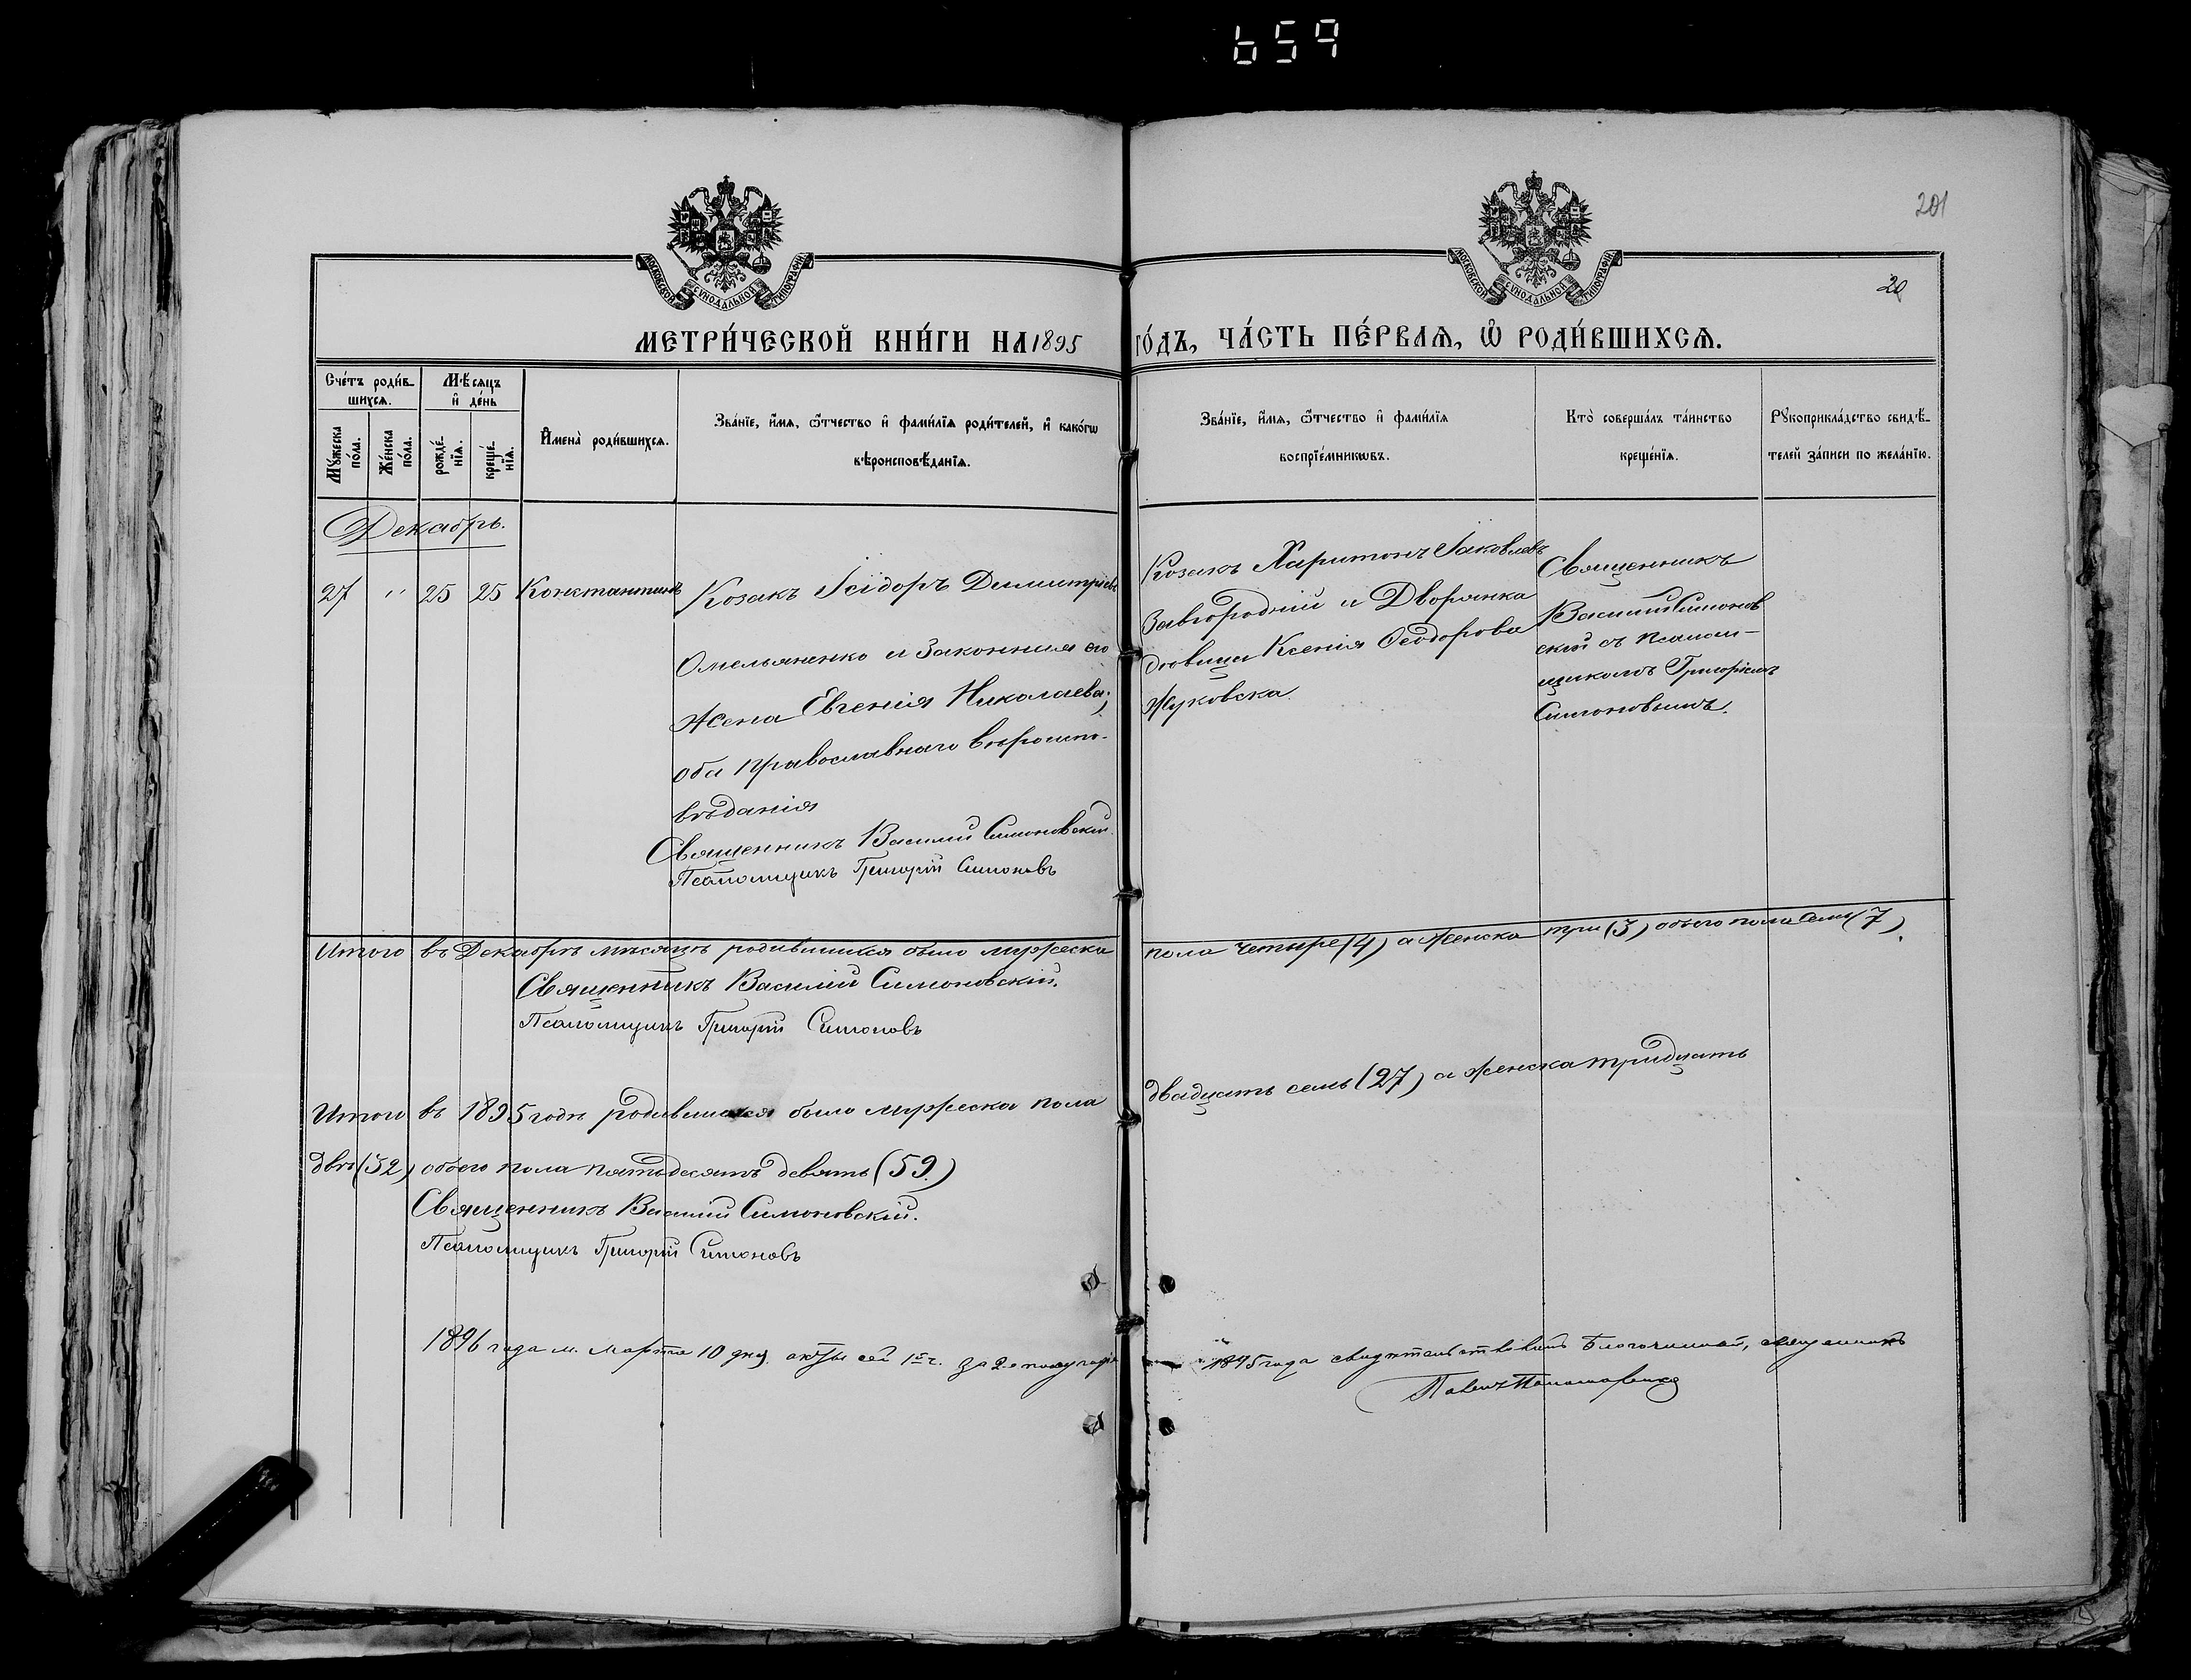 659
201
20
МОСКОВСКОЙ СѴНОДАЛЬНОЙ ТИПОГРАФІИ
МОСКОВСКОЙ СѴНОДАЛЬНОЙ ТИПОГРАФІИ
МЕТРИ́ЧЕСКОЙ КНИ́ГИ НА 1895 ГО́ДЪ, ЧА́СТЬ ПЕ́РВАѦ, Ѡ҆ РОДИ́ВШИХСѦ.
Сче́тъ роди́в-
шихсѧ.
Мꙋжеска по́ла.
Же́нска по́ла.
Мѣ́сѧцъ
и҆ де́нь
рожде́-
нїѧ.
креще́-
нїѧ.
И҆мена̀ роди́вшихсѧ.
Зва́нїе, и҆́мѧ, ѻ҆́тчество и҆ фами́лїѧ роди́телей, и҆ како́гѡ
вѣроисповѣ́данїѧ.
Зва́нїе, и҆́мѧ, ѻ҆́тчество и҆ фами́лїѧ
воспрїе́мникѡвъ.
Кто̀ соверша́лъ та́инство
креще́нїѧ.
Рꙋкоприкла́дство свидѣ́-
телей за́писи по жела́нїю.
Декабрь.
27 " 25 25 Константинъ
Козакъ Ісідоръ Димитріевъ
Омельяненко и законная его
жена Евгенія Николаева;
оба православнаго вѣроиспо-
вѣданія
Священникъ Василій Симоновскій.
Псаломщикъ Григорій Симоновъ
Козакъ Харитонъ Іаковлевъ
Завгородній и Дворянка
дѣвица Ксенія Ѳеодорова
Жуковска.
Священникъ
Василій Симонов
скій съ псалом-
щикомъ Григоріемъ
Симоновымъ.
Итого въ Декабрѣ мѣсяцѣ родившихся было мужеска пола четыре (4) а женска три (3) обоего пола семь (7).
Священникъ Василій Симоновскій.
Псаломщикъ Григорій Симоновъ
Итого въ 1895 годѣ родившихся было мужеска пола двадцать семь (27) а женска тридцать
двѣ (32) обоего пола пятьдесятъ девять (59.)
Священникъ Василій Симоновскій.
Псаломщикъ Григорій Симоновъ
1896 года м. Марта 10 дня, акты сей 1й ч. за 2е полугодіе 1895 года свидѣтельствовалъ Благочинный, священникъ
Павелъ Пономаренко